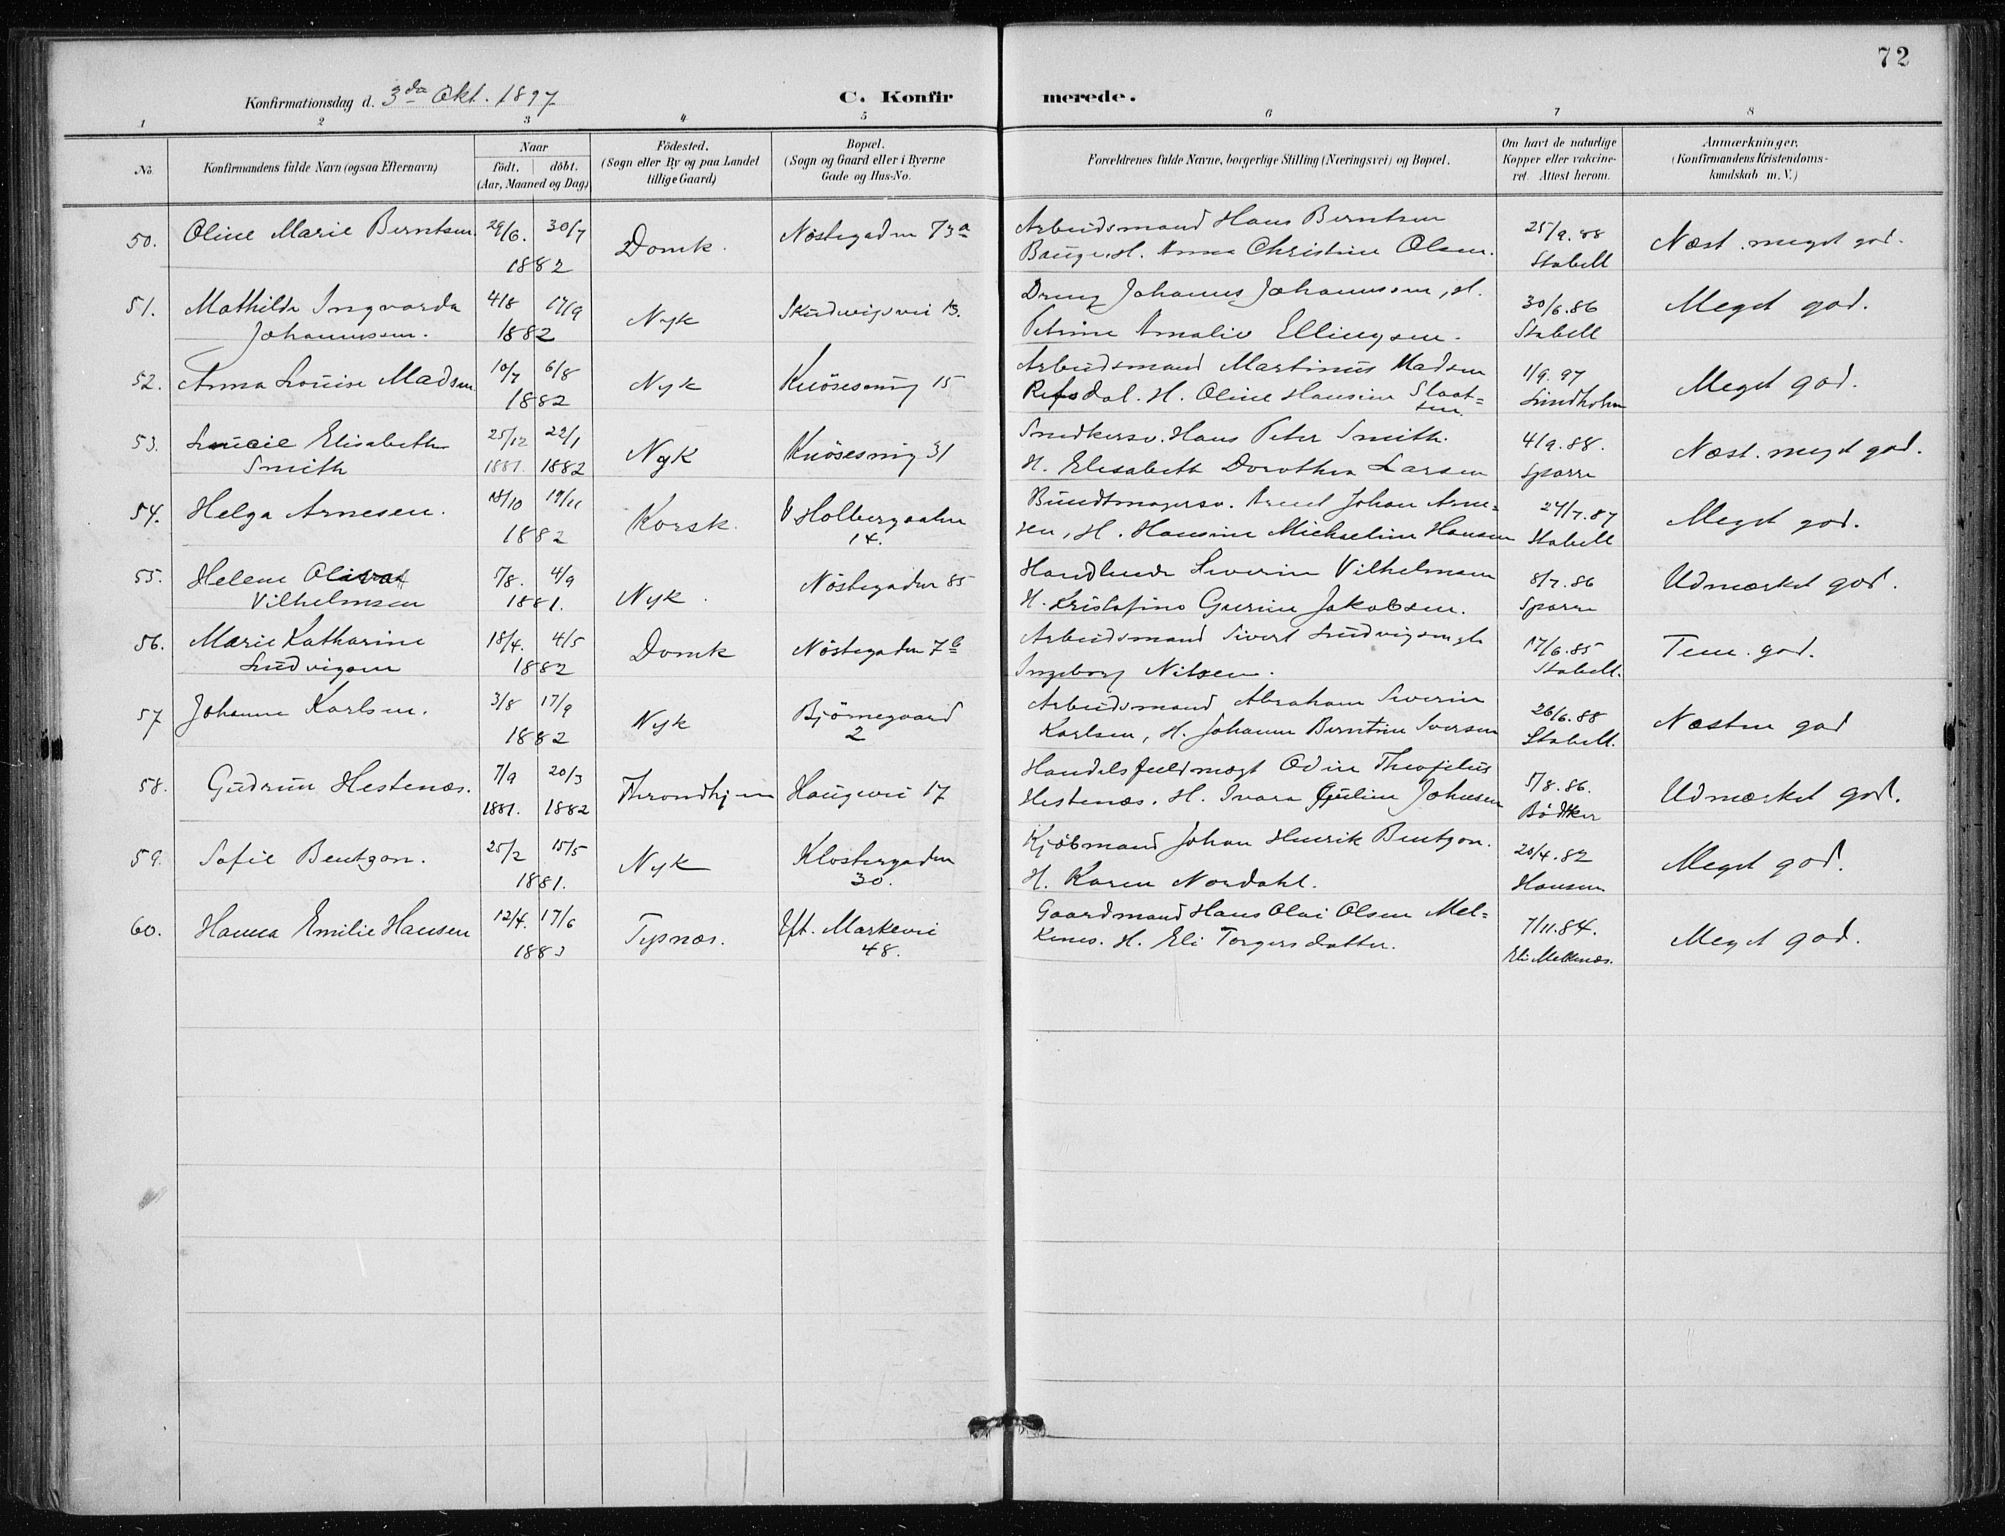 72
Konfirmationsdag d. 3die Okt. 1897 C. Konfirmerede.
1 2 3 4 5 6 7 8
No. Konfirmandens fulde Navn (ogsaa Efternavn) Naar født. døbt. (Aar, Maaned og Dag) Fødested. (Sogn eller By og paa Landet tillige Gaard) Bopæl. (Sogn og Gaard eller i Byerne Gade og Hus-No. Forældrenes fulde Navne, borgerlige Stilling (Næringsvei) og Bopæl. Om havt de naturlige Kopper eller vakcineret. Attest herom. Anmærkninger. (Konfirmandens Kristendomskundskab m. V.)
50. Oline Marie Berntsen 29/6. 30/7 Domk. Nøstegaden 73a Arbeidsmand Hans Berntsen 25/9.88 Næst. meget god.
1882 H. Anna Christine Olsen. Stabell
51. Mathilde Ingvarda 4/8 17/9 Nyk Skudeviksvei 13. Dreng Johannes Johannessen, H. 30/6.86 Meget god.
Johannessen. 1882 Petrine Amalie Ellingsen. Stabell
52. Anna Louise Madsen 10/7 6/8 Nyk Knøsesmug 15 Arbeidsmand Martinus Madsen 1/9.97 Meget god.
1882 Refsdal. H. Oline Hansine Slaat- Lindholm
sen.
53. Lucie Elisabeth 25/12 22/1 Nyk Knøsesmug 31 Snedkersv. Hans Peter Smith. 4/9.88. Næst. meget god.
Smith 1881. 1882 H. Elisabeth Dorothea Larsen Sparre
54. Helga Arnesen. 18/10 19/11 Korsk. V Holbergsalm Bundtmagersv. Arent Johan Arne= 24/7.87 Meget god.
1882 14. sen, H. Hansine Michaeline Hansen Stabell
55. Helene Olava 7/8. 4/9 Nyk. Nøstegaden 85 Handlende Severin Vilhelmsen 8/7.86 Udmærket god.
Vilhelmsen 1881. H. Kristofine Gurine Jakobsen. Sparre
56. Marie Katharine 18/4. 4/5 Domk Nøstegaden 7b Arbeidsmand Sivert Ludvigsen 17/6.85 Tem. god.
Ludvigsen 1882 Ingeborg Nilsen. Stabell.
57 Johanne Karlsen. 3/8 17/9 Nyk Bjørnegaard Arbeidsmand Abraham Severin 26/6.88 Næsten god
1882 2 Karlsen, H. Johanne Berntine Iversen Stabell.
58. Gudrun Hestenæs. 7/9 20/3 Throndhjem Haugevei 17 Handelsfuldmægt Odin Theofilus 5/8.86. Udmærket god.
1881. 1882 Hestenæs. H. Ivara Gjuline Johnsen Bødtker
59. Sofie Bentzon. 25/2 15/5 Nyk Klostergaden Kjøbmand Johan Henrik Bentzon. 20/4.82 Meget god.
1881. 30. H. Karen Nordahl. Hansen
60. Hanna Emilie Hansen 12/4. 17/6 Tysnæs. Ytt. Markevei Gaardmand Hans Olai Olsen Mel= 7/11.84. Meget god.
1883 48. kenes. H. Eli Torgersdatter. Eli Melkenæs.